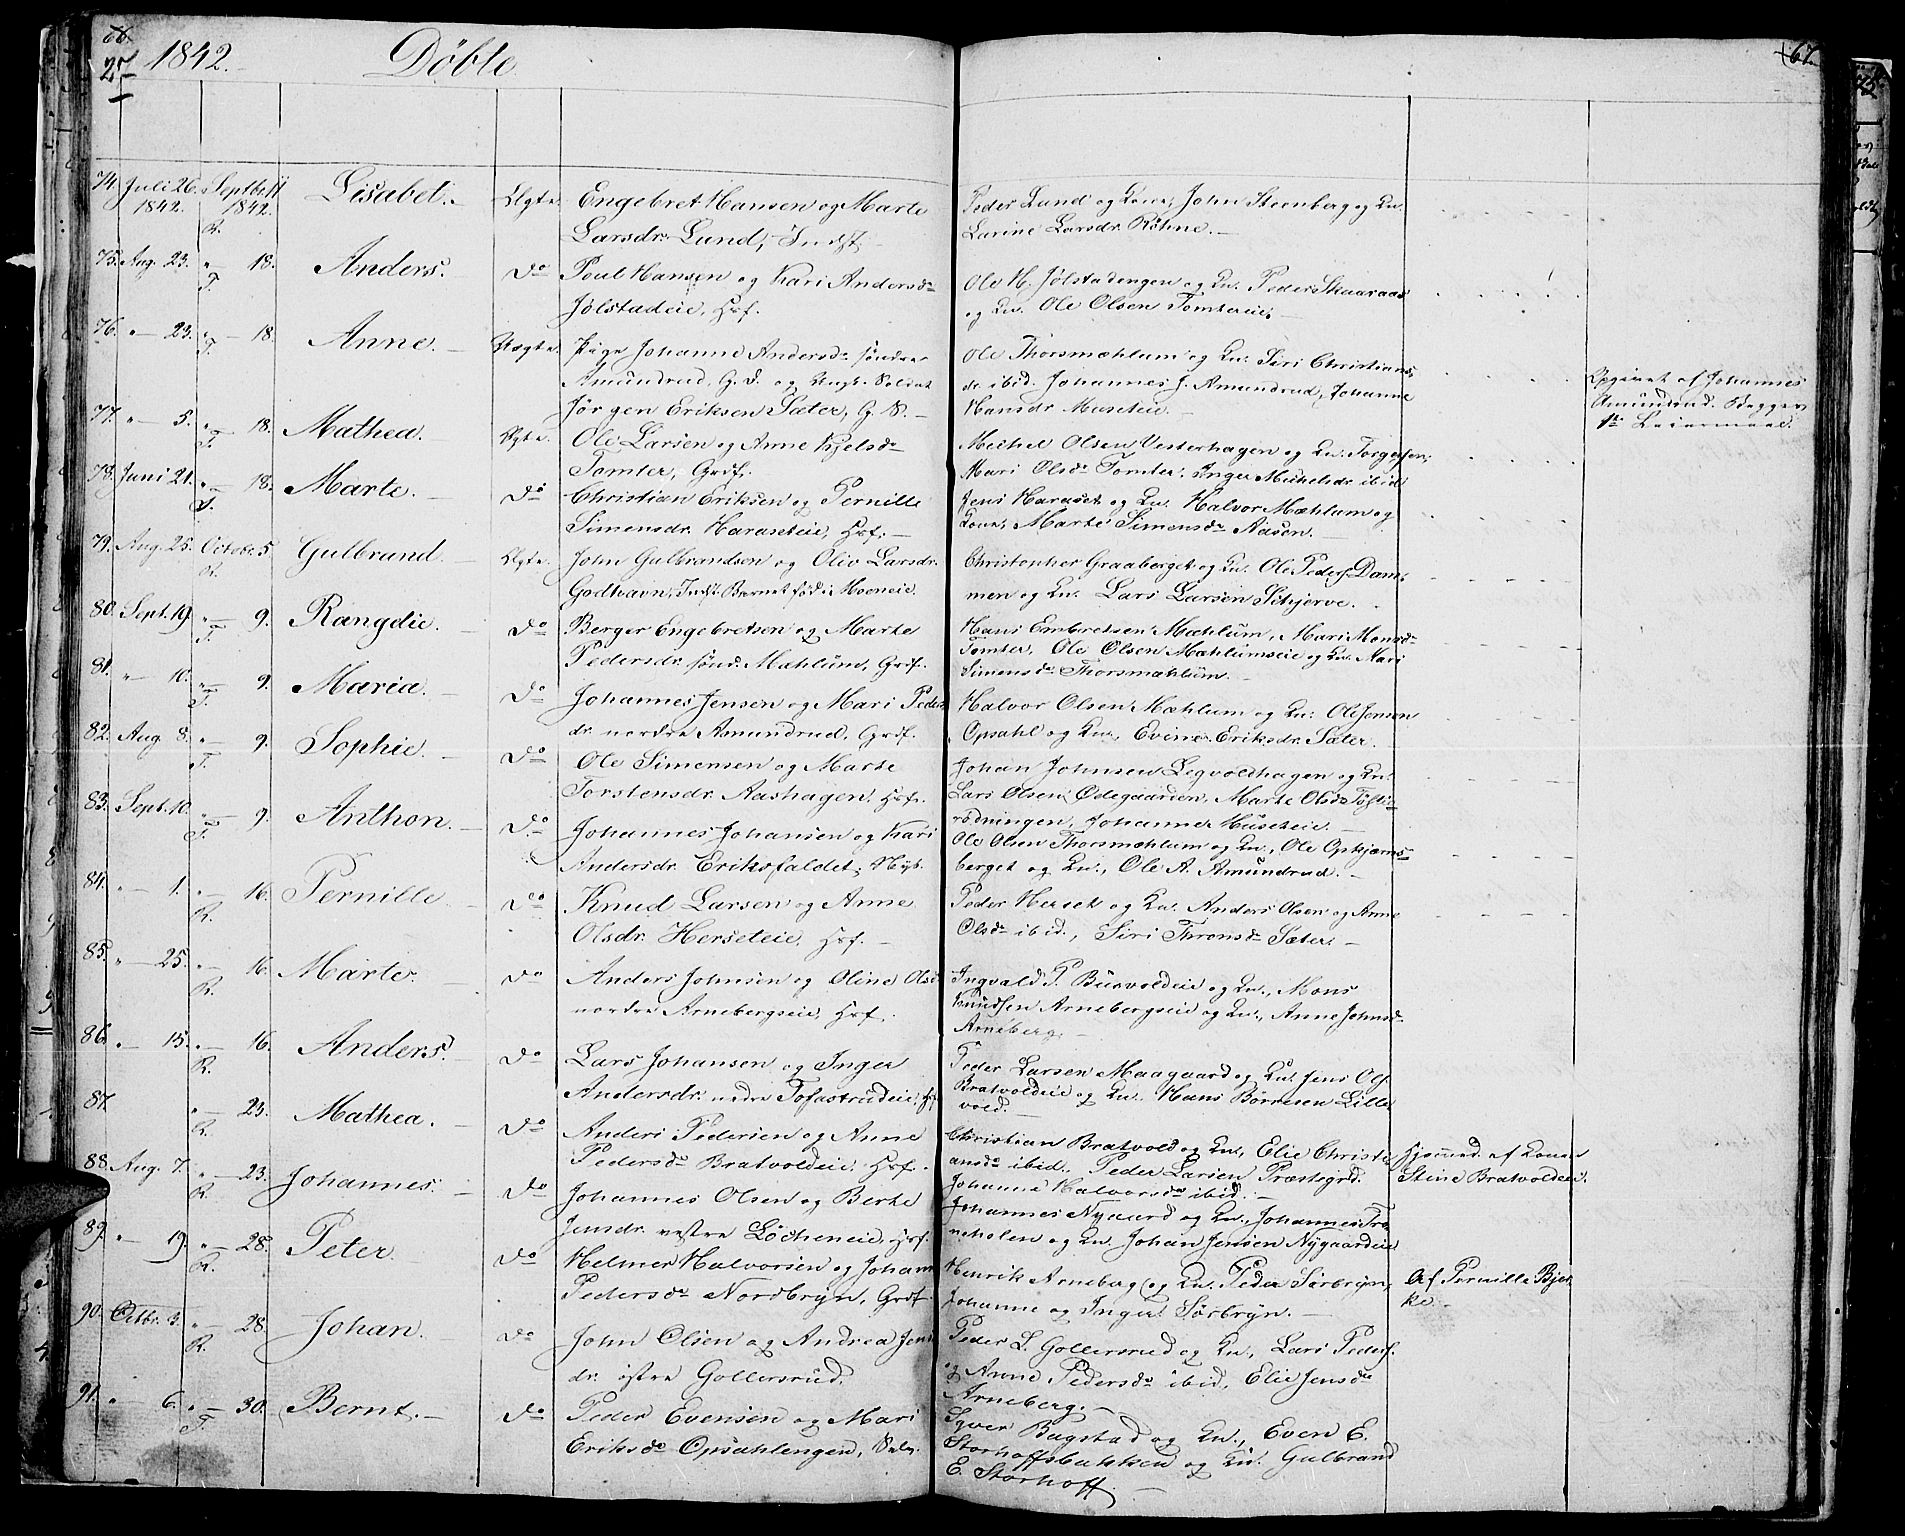 66.
27 1842. Döbte. 67.
74. Juli 26. 1842. Septbr. 11 1842. R. Lisabet. Ægte. Engebret Hansen og Marte
Larsdr. Lund, Indst.
Peder Lund og Kone, John Steenberg og Ko.
Larine Larsdr. Röhne.
75. Aug. 23. " 18. T. Anders. Do Poul Hansen og Kari Andersdr
Jølstadeie, Hsf.
Ole H. Jølstadengen og Ko. Peder Skaaraas
og Ko. Ole Olsen Tomtereie.
76. " 23. " 18. T. Anne. Uægte. Pige Johanne Andersdr søndre
Amundrud, G. D. og Ungk. Soldat
Jörgen Eriksen Sæter, G. S.
Ole Thorsmæhlum og Ko. Siri Christians
dr. ibid. Johannes J. Amundrud, Johanne
Hansdr Museteie.
Opgivet af Johannes
Amundrud. Begges
1ste Leiermaal.
77. " 5. " 18. T. Mathea. Ægte. Ole Larsen og Anne Kjelsdr
Tomter, Grdf.
Michel Olsen Vesterhagen og Ko. Torgersen,
Mari Olsdr Tomter, Inger Michelsdr. ibid
78. Juni 21. " 18. T. Marte. Do Christian Eriksen og Pernille
Simensdr. Haraseteie, Hsf.
Jens Haraset og Ko. Halvor Mæhlum og
Kone, Marte Simensdr Aasen.
79. Aug. 25. Octobr. 5 R. Gulbrand. Ægte. John Gulbrandsen og Oliv Larsdr.
Godthavn, Indst. Barnet född i Moeneie.
Christopher Graaberget og Ko. Ole Peders. Dam-
men og Ko. Lars Larsen Skjerve.
80. Sept. 19. " 9. T. Rangdie. Do Berger Engebretsen og Marte
Pedersdr. sønd. Mæhlum, Grdf.
Hans Embretsen Mæhlum, Mari Monsdr
Tomter, Ole Olsen Mæhlumseie og Ko. Mari
Simensdr Thorsmæhlum.
81. " 10. " 9. T. Maria. Do Johannes Jensen og Mari Peders
dr. nordre Amundrud, Grdf.
Halvor Olsen Mæhlum og Ko. Ole Jensen
Opsahl og Ko. Evine Eriksdr. Sæter.
82. Aug. 8. " 9. T. Sophie. Do Ole Simensen og Marte
Torstensdr. Aashagen, Hsf.
Johan Johnsen Legvoldhagen og Ko.
Lars Olsen Ødegaarden, Marte Olsdr Tofte
rødningen, Johanne Museteie.
83. Sept. 10. " 9. T. Anthon. Do Johannes Johansen og Kari
Andersdr. Eriksfaldet, Nyb.
Ole Olsen Thorsmæhlum og Ko., Ole Opkjærns-
berget og Ko., Ole A. Amundrud.
84. " 1. " 16. R. Pernille. Do Knud Larsen og Anne
Olsdr. Herseteie, Hsf.
Peder Herset og Ko. Anders Olsen og Anne
Olsdr ibid., Siri Thronsdr Sæter.
85. " 25. " 16. R. Marte. Do Anders Johnsen og Oline Olsdr
nordre Arnebergseie, Hsf.
Ingvald P. Busvoldeie og Ko., Mons
Knudsen Arnebergseie og Ko., Anne Johnsdr
Arneberg.
86. " 15. " 16. R. Anders. Do Lars Johansen og Inger
Andersdr. nedre Tofastrudeie, Hsf
Peder Larsen Maagaard og Ko. Jens Ols.
Bratvoldeie og Ko. Hans Börresen Lille
vold.
87. " 23. R. Mathea. Do Anders Pedersen og Anne
Pedersdr Bratvoldeie, Hsf.
Christian Bratvold og Ko., Elie Christi
ansdr ibid., Peder Larsen Præstegrd.
Johanne Halvorsdr ibid.
Hjemmed. af Konen
Stine Bratvoldeie.
88. Aug. 7. " 23. R. Johannes. Do Johannes Olsen og Berte
Jensdr. vestre Löcheneie, Hsf.
Johannes Nygaard og Ko., Johannes Tro
neholen og Ko. Johan Jensen Nygaardeie
89. " 19. " 28. R. Peter. Do Helmer Halvorsen og Johanne
Pedersdr Nordbryn, Grdf.
Henrik Arneberg og Ko. Peder Sørbryn,
Johanne og Inger Sørbryn.
Af Pernille Bjer
ke.
90. Octbr. 3. " 28. R. Johan. Do John Olsen og Andrea Jens
dr. østre Gollersrud.
Peder L. Gollersrud og Ko., Lars Peders.
og Anne Pedersdr ibid, Elie Jensdr
Arneberg.
91. " 6. " 30. T. Bernt. Do Peder Evensen og Mari
Eriksdr Opsahlengen, Selv.
Syver Bagstad og Ko., Even E.
Storhoffsbakken og Ko. Gulbrand
E. Storhoff.